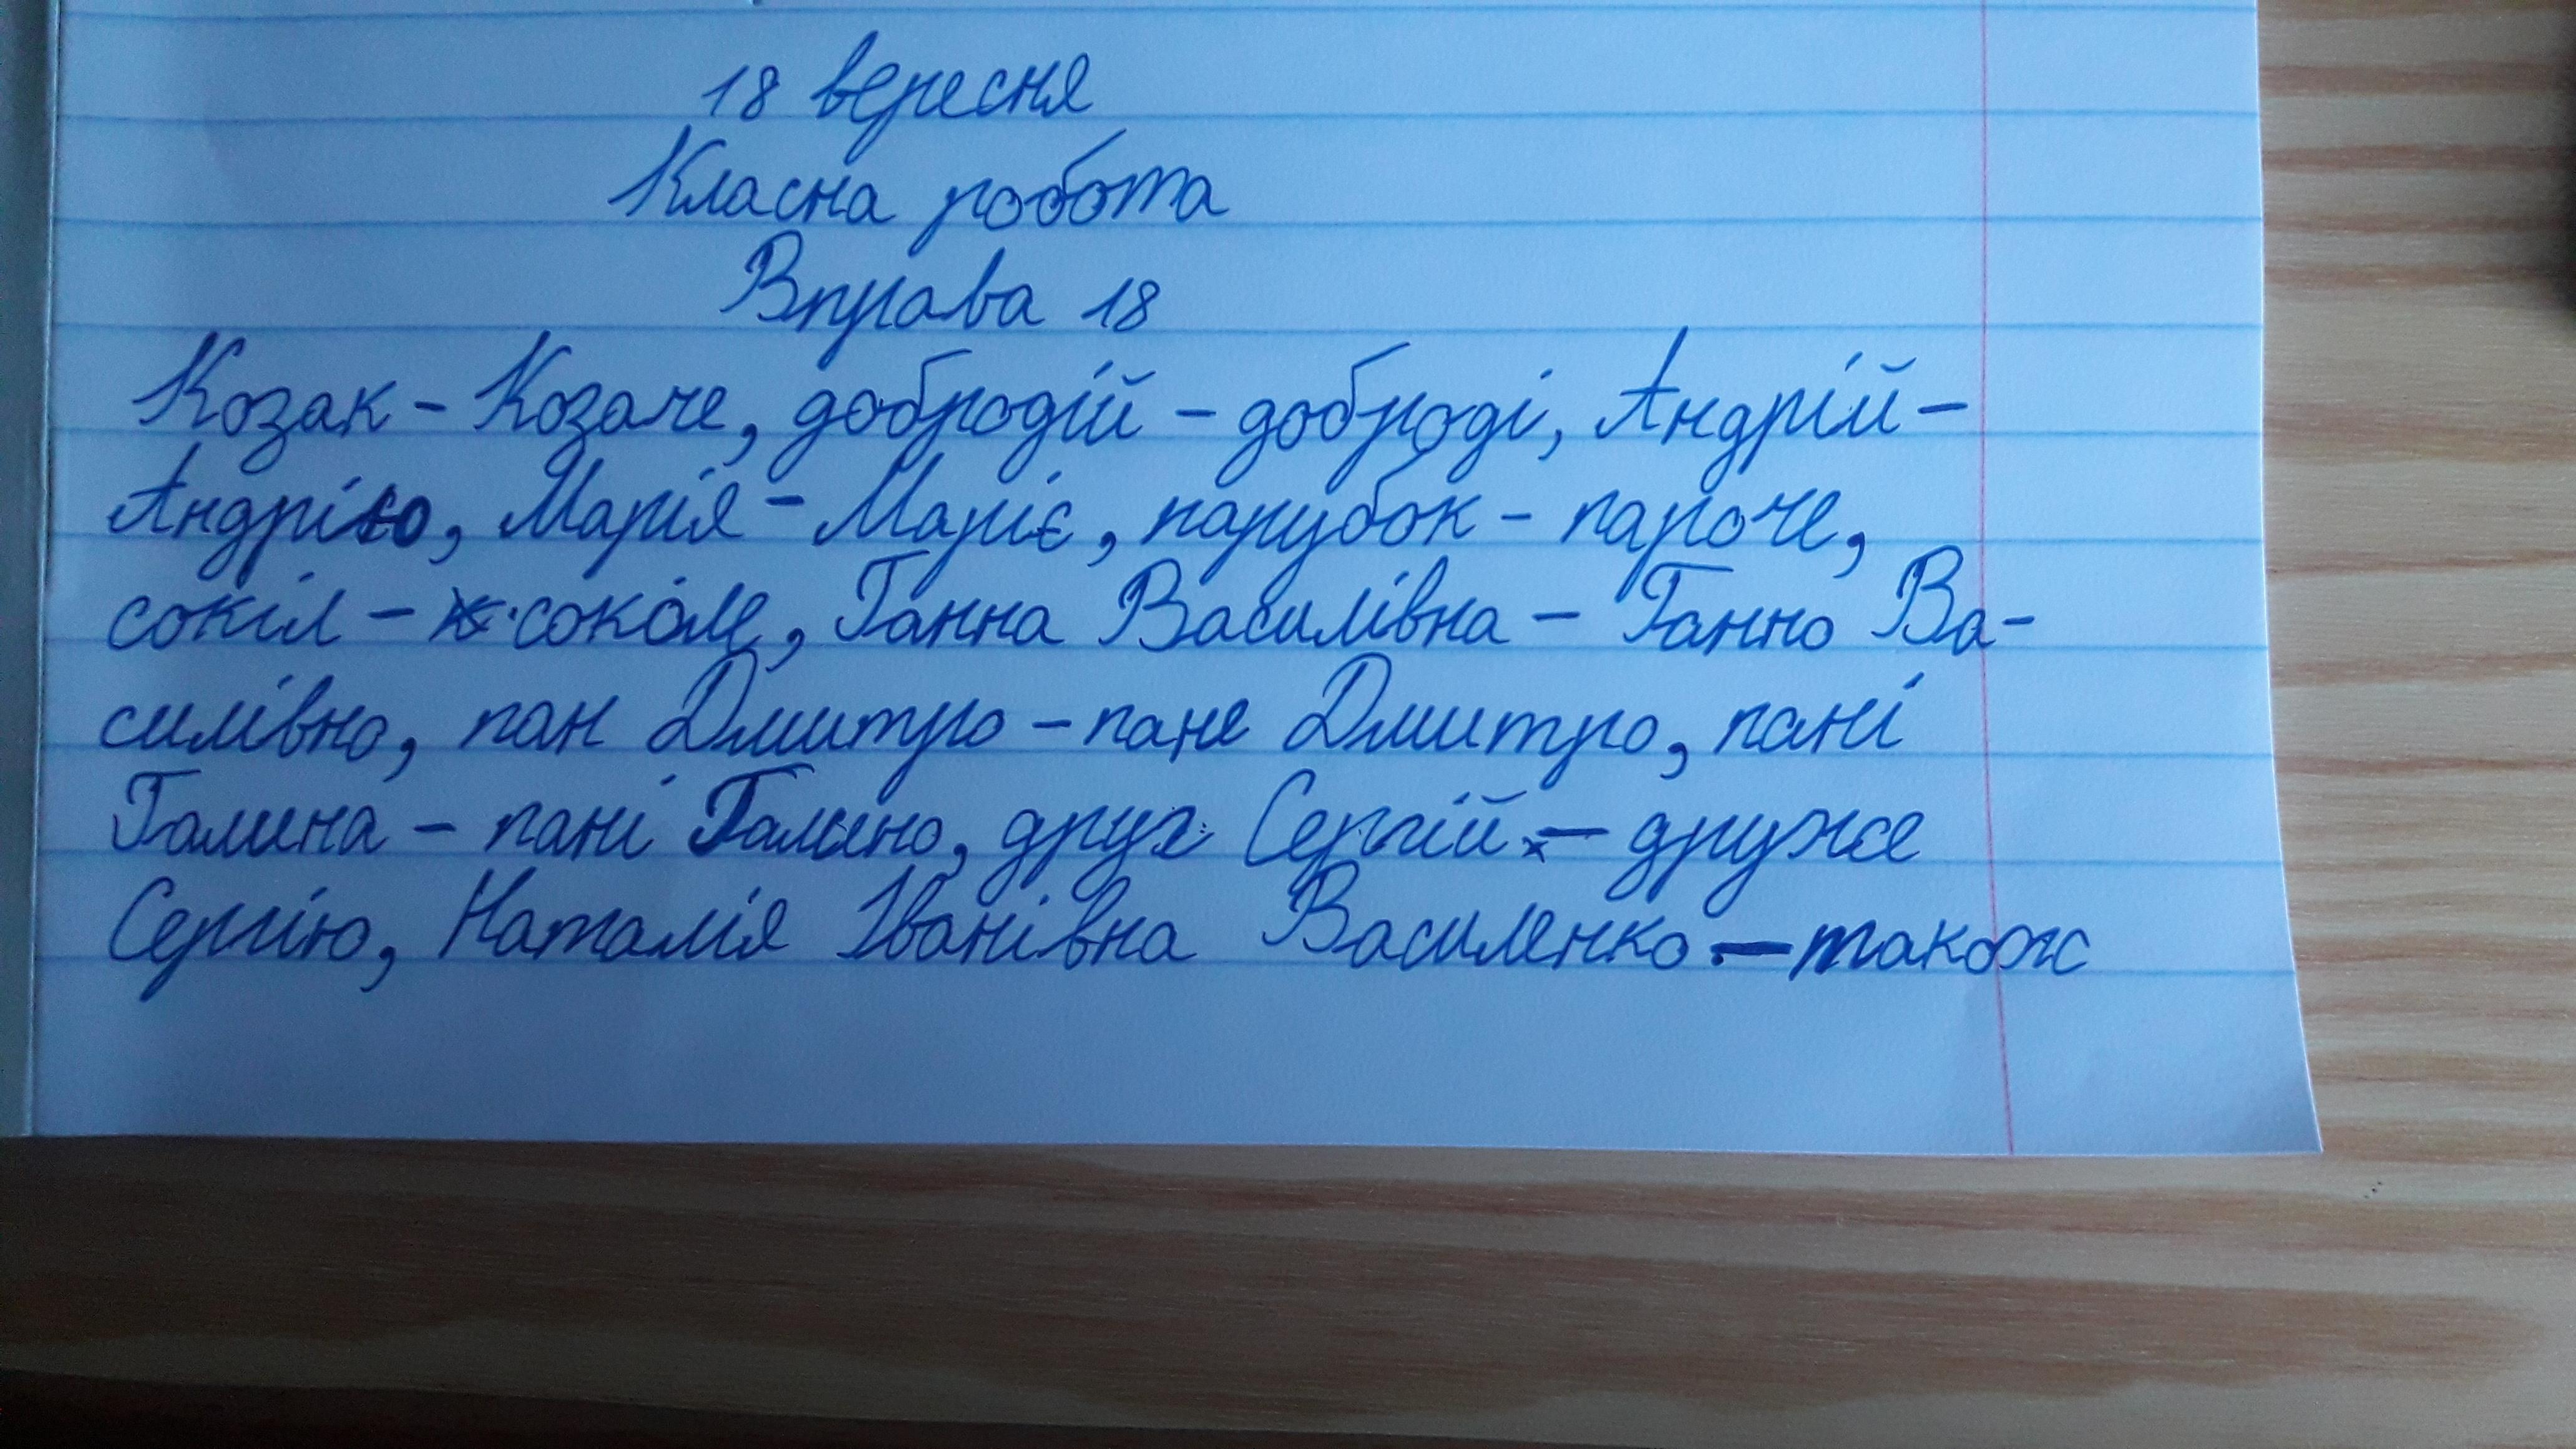 18 вересня
Класна робота
Вправа 18
Козак - Козаче, добродій - доброді, Андрій -
Андрію, Марія - Маріє, парубок - пароче,
сокіл - соколе, Ганна Василівна - Ганно Ва-
силівно, пан Дмитро - пане Дмитро, пані
Галина - пані Галино, друг Сергій - друже
Сергію, Наталія Іванівна Василенко - також